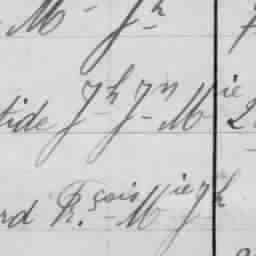 M - Jh
tide Jh Jn Mie 2
rd Fr.çois - Mie Jh